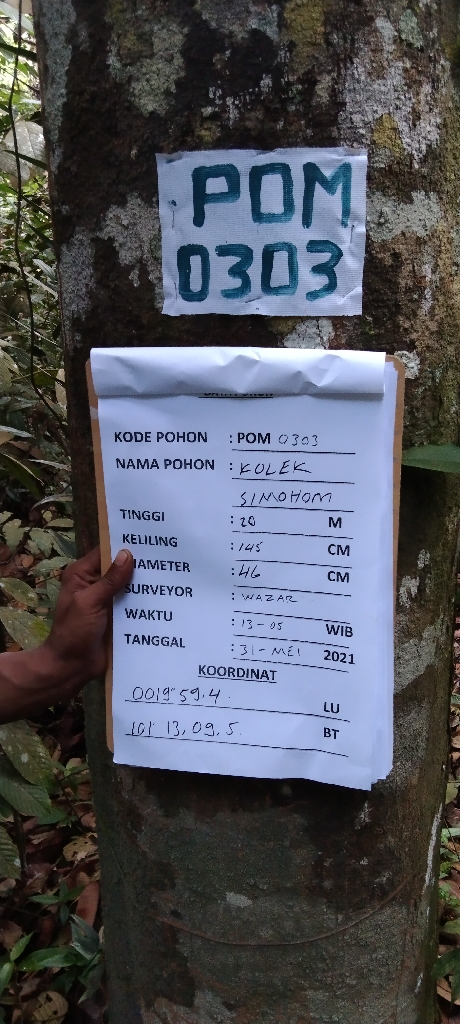 POM
0303
KODE POHON : POM 0303
NAMA POHON : KOLEK
SIMOHOM
TINGGI : 20 M
KELILING : 145 CM
IAMETER : 46 CM
SURVEYOR : WAZAR
WAKTU : 13-05 WIB
TANGGAL : 31-MEI 2021
KOORDINAT
0019"59.4. LU
101' 13,09,5. BT